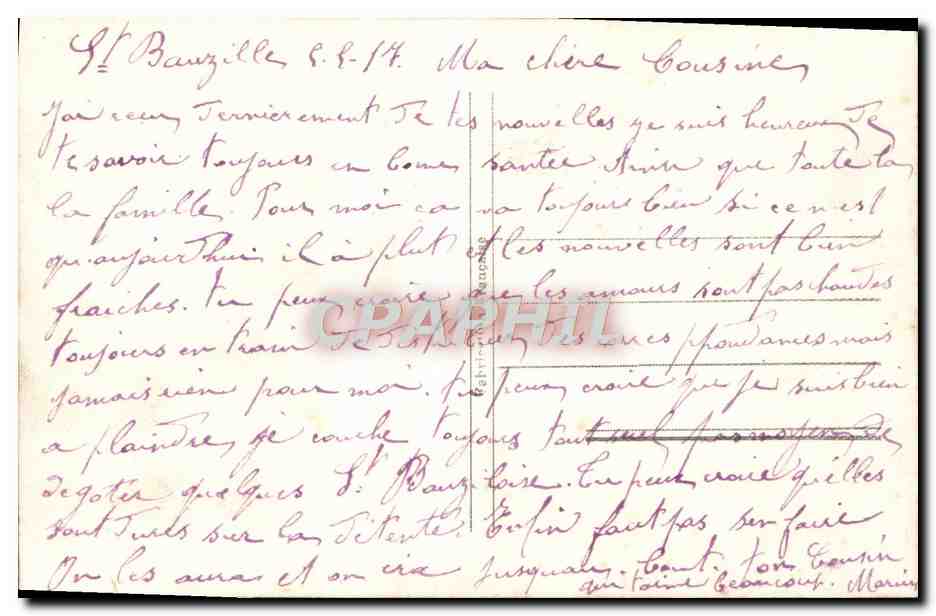 St Bauzille 5-5-17. Ma chère Cousine
J'ai recu dernierement de tes nouvelles je suis heureux de
te savoir toujours en bonne santée Ainsi que toute la
la famille. Pour moi ca va toujours bien si ce n'est
qu'aujourd'hui il à plut et les nouvelles sont bien
fraiches. tu peux croire que les amours sont pas chaudes
toujours en train de des corres ppondances mais
jamais rien pour moi. tu peux croire que je suis bien
a plaindre, je couche toujours tout seul pas moyen de
degoter quelques St Bauziloise. Tu peux croire qu'elles
sont dures sur la détente. Enfin faut pas sen faire
On les aura et on ira jusquau bout. ton Cousin
qui t'aime beaucoup. Marius
Fabrication Française
CPAPHIL